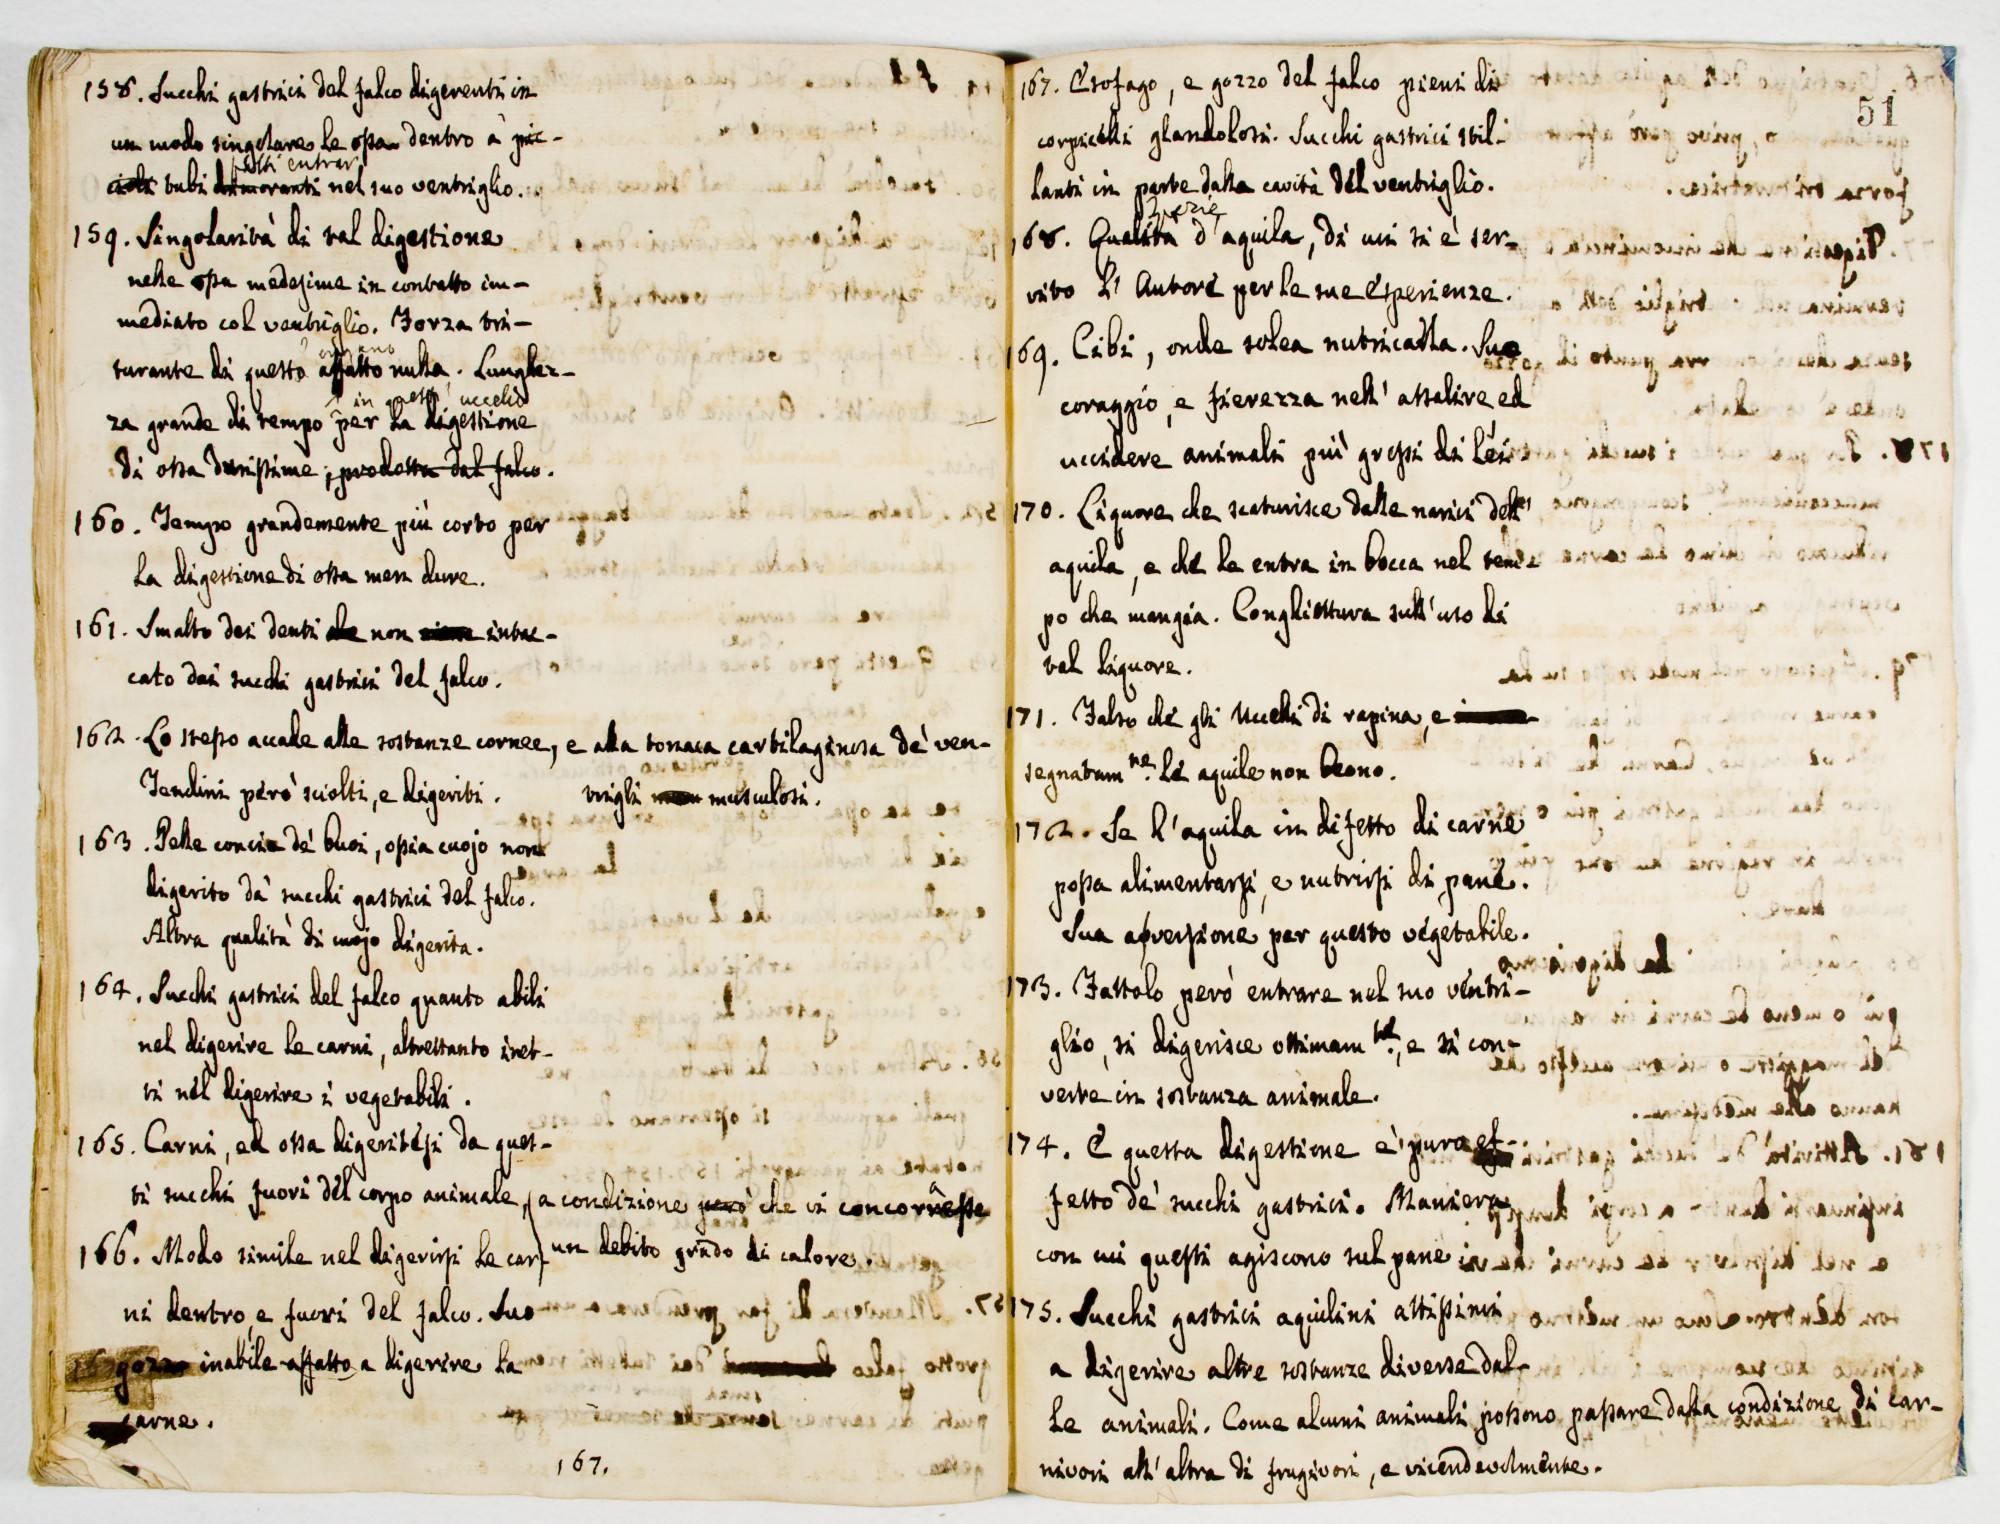 158. Succhi gastrici del falco digerenti in
un modo singolare le ossa dentro a' pic-
cioli tubi fatti entrar dimoranti nel suo ventriglio.
159. Singolarità di tal digestione
nelle ossa medesime in contatto im-
mediato col ventriglio. Forza tri-
turante di questo organo affatto nulla. Lunghez-
za grande di tempo in questi uccelli per la digestione
di ossa durissime, prodotta dal falco.
160. Tempo grandemente più corto per
la digestione di ossa men dure.
161. Smalto dei denti che non viene intac-
cato dai succhi gastrici del falco.
162. Lo stesso accade alle sostanze cornee, e alla tonaca cartilaginosa de' ven-
trigli musculosi.
Tendini però sciolti, e digeriti.
163. Pelle concia de' buoi, ossia cuojo non
digerito da' succhi gastrici del falco.
Altra qualità di cuojo digerita.
164. Succhi gastrici del falco quanto abili
nel digerire le carni, altrettanto inet-
ti nel digerire i vegetabili.
165. Carni, ed ossa digeritesi da ques-
ti succhi fuori del corpo animale, a condizione però che vi concorresse
un debito grado di calore.
166. Modo simile nel digerirsi le car-
ni dentro, e fuori del falco. Suo
gozzo inabile affatto a digerire la
carne.
167.
51
167. Esofago, e gozzo del falco pieni di
corpicelli glandolosi. Succhi gastrici stil-
lanti in parte dalla cavità del ventriglio.
168. Qualità Specie d'aquila, di cui si è ser-
vito l'Autore per le sue esperienze.
169. Cibi, onde solea nutricarla. Suo
coraggio, e fierezza nell' assalire ed
uccidere animali più grossi di lei.
170. Liquore che scaturisce dalle narici dell'
aquila, e che le entra in bocca nel tem-
po che mangia. Conghiettura sull' uso di
tal liquore.
171. Falso che gli Uccelli di rapina, e
segnatamne. le aquile non beono.
172. Se l'aquila in difetto di carne
possa alimentarsi, e nutrirsi di pane.
Sua avversione per questo vegetabile.
173. Fattolo però entrare nel suo ventri-
glio, si digerisce ottimamte., e si con-
verte in sostanza animale.
174. E questa digestione e' puro ef-
fetto de' succhi gastrici. Maniera
con cui questi agiscono sul pane.
175. Succhi gastrici aquilini attissimi
a digerire altre sostanze diverse dal-
le animali. Come alcuni animali possono passare dalla condizione di car-
nivori all' altra di frugivori, e vicendevolmente.